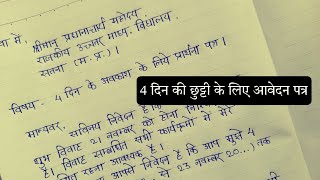 में,
श्रीमान् प्रधानाचार्य महोदय
शासकीय उच्चतर माध्य. विद्यालय
सतना (म.प्र.)।
विषय - 4 दिन के अवकाश के लिये प्रार्थना पत्र।
4 दिन की छुट्टी के लिए आवेदन पत्र
मान्यवर,
सविनय निवेदन है कि
शुभ विवाह 21 नवम्बर को होना
है। विवाह सम्बंधित सभी कार्यक्रमों में मेरे
रहना आवश्यक है।
आपसे निवेदन है कि आप मुझे 4
से 23 नवम्बर 20...) तक